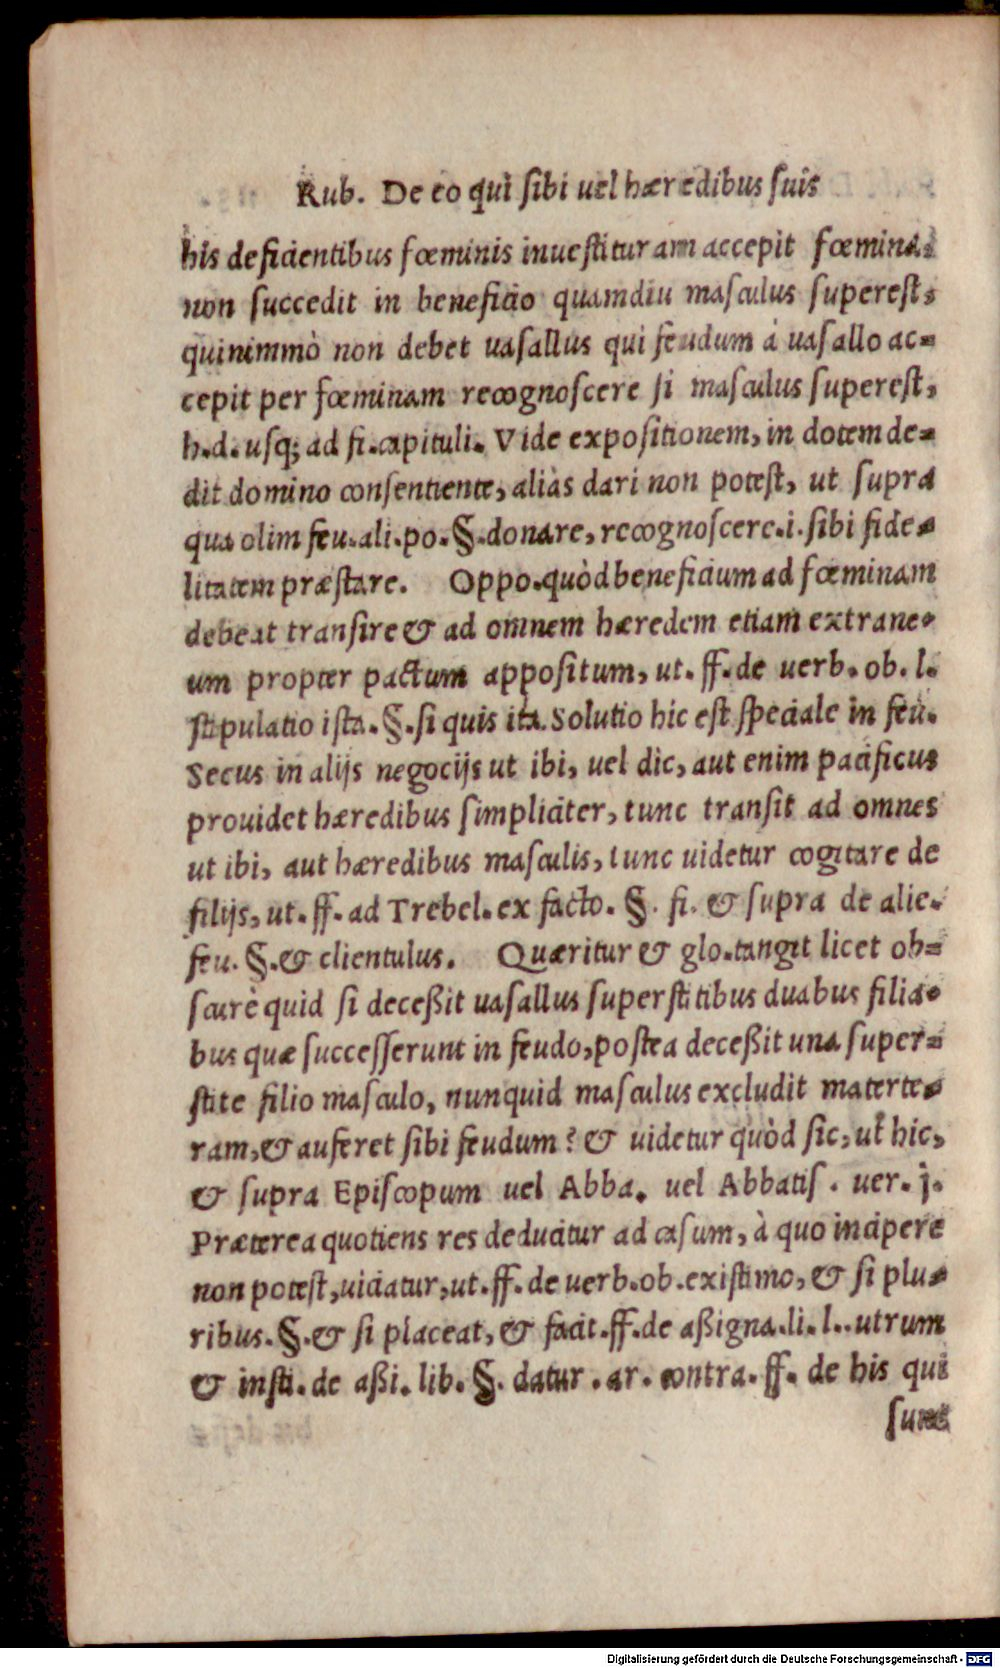 Rub. De eo qui sibi uel hæredibus suis
his deficientibus fœminis inuestituram accepit fœmina
non succedit in beneficio quamdiu masculus superest,
quinimmò non debet uasallus qui feudum à uasallo ac=
cepit per fœminam recognoscere si masculus superest,
h.d. usq; ad fi. capituli. Vide expositionem, in dotem de=
dit domino consentiente, aliàs dari non potest, ut supra
qua olim feu. ali. po. §. donare, recognoscere .i. sibi fide=
litatem præstare. Oppo. quòd beneficium ad fœminam
debeat transire & ad omnem hæredem etiam extrane=
um propter pactum appositum, ut. ff. de uerb. ob. l.
stipulatio ista. §. si quis ita. Solutio hic est speciale in feu.
Secus in alijs negocijs ut ibi, uel dic, aut enim pacificus
prouidet hæredibus simpliciter, tunc transit ad omnes
ut ibi, aut hæredibus masculis, tunc uidetur cogitare de
filijs, ut. ff. ad Trebel. ex facto. §. fi. & supra de alie.
feu. §. & clientulus. Quæritur & glo. tangit licet ob=
scurè quid si deceßit uasallus superstitibus duabus filia=
bus quæ successerunt in feudo, postea deceßit una super=
stite filio masculo, nunquid masculus excludit materte=
ram, & auferet sibi feudum? & uidetur quòd sic, ut hic,
& supra Episcopum uel Abba. uel Abbatis. uer. j.
Præterea quotiens res deducitur ad casum, à quo incipere
non potest, uiciatur, ut. ff. de uerb. ob. existimo, & si plu=
ribus. §. & si placeat, & facit. ff. de aßigna. li. l.. utrum
& insti. de aßi. lib. §. datur. ar. contra. ff. de his qui
sunt
Digitalisierung gefördert durch die Deutsche Forschungsgemeinschaft - DFG